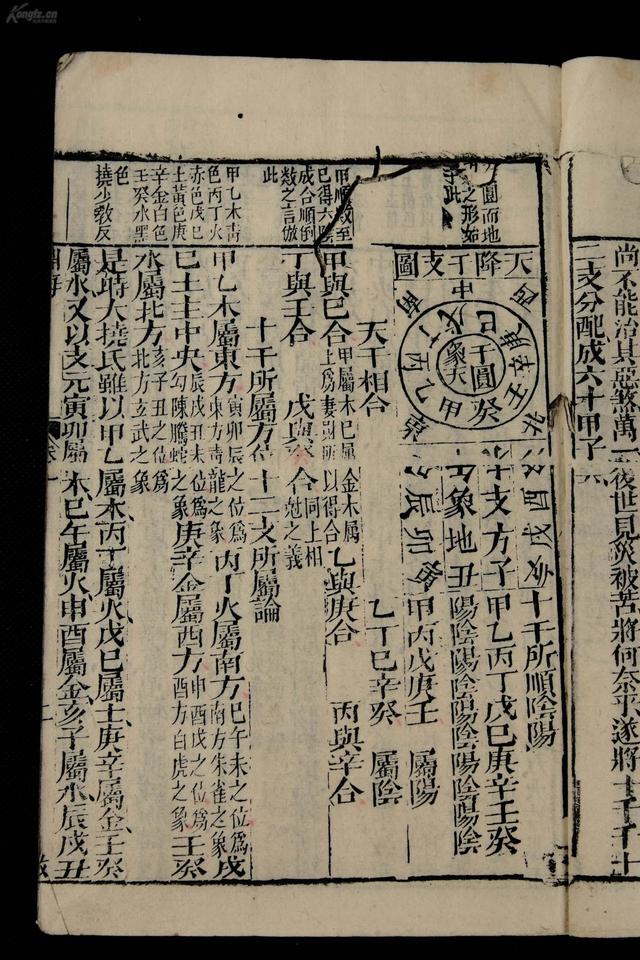 尚不能治其惡煞萬一後世見災被苦將何奈乎遂將十干十
二支分配成六十甲子
圓而地
之形如
此
天降干支圖
干圓
象天
十支方
象地
子丑
卯辰
酉戌
甲乙丙丁戊己
壬癸
東
南
中
西
北
十干所順陰陽
甲乙丙丁戊己庚辛壬癸
陽陰陽陰陽陰陽陰陽陰
甲丙戊庚壬 屬陽
乙丁己辛癸 屬陰
甲順數至
己得六
成合順倒
數之言倣
此
天干相合
甲與己合 甲屬木己屬 金木屬
乙與庚合 丙與辛合
丁與壬合 戊與癸合 同上相尅之義
甲乙木青
色丙丁火
赤色戊己
土黃色庚
辛金白色
壬癸水黑
色
撓少敎反
十干所屬方位 十二支所屬論
甲乙木屬東方 寅卯辰之位爲東方青龍之象 丙丁火屬南方 巳午未之位爲南方朱雀之象 戊
己土主中央 辰戌丑未位爲勾陳騰蛇之象 庚辛金屬西方 申酉戌之位爲酉方白虎之象 壬癸
水屬北方 亥子丑之位爲北方玄武之象
是時大撓氏雖以甲乙屬木丙丁屬火戊己屬土庚辛屬金壬癸
屬水又以支元寅卯屬木巳午屬火申酉屬金亥子屬水辰戌丑
淵海
卷一
二
Kongfz.cn